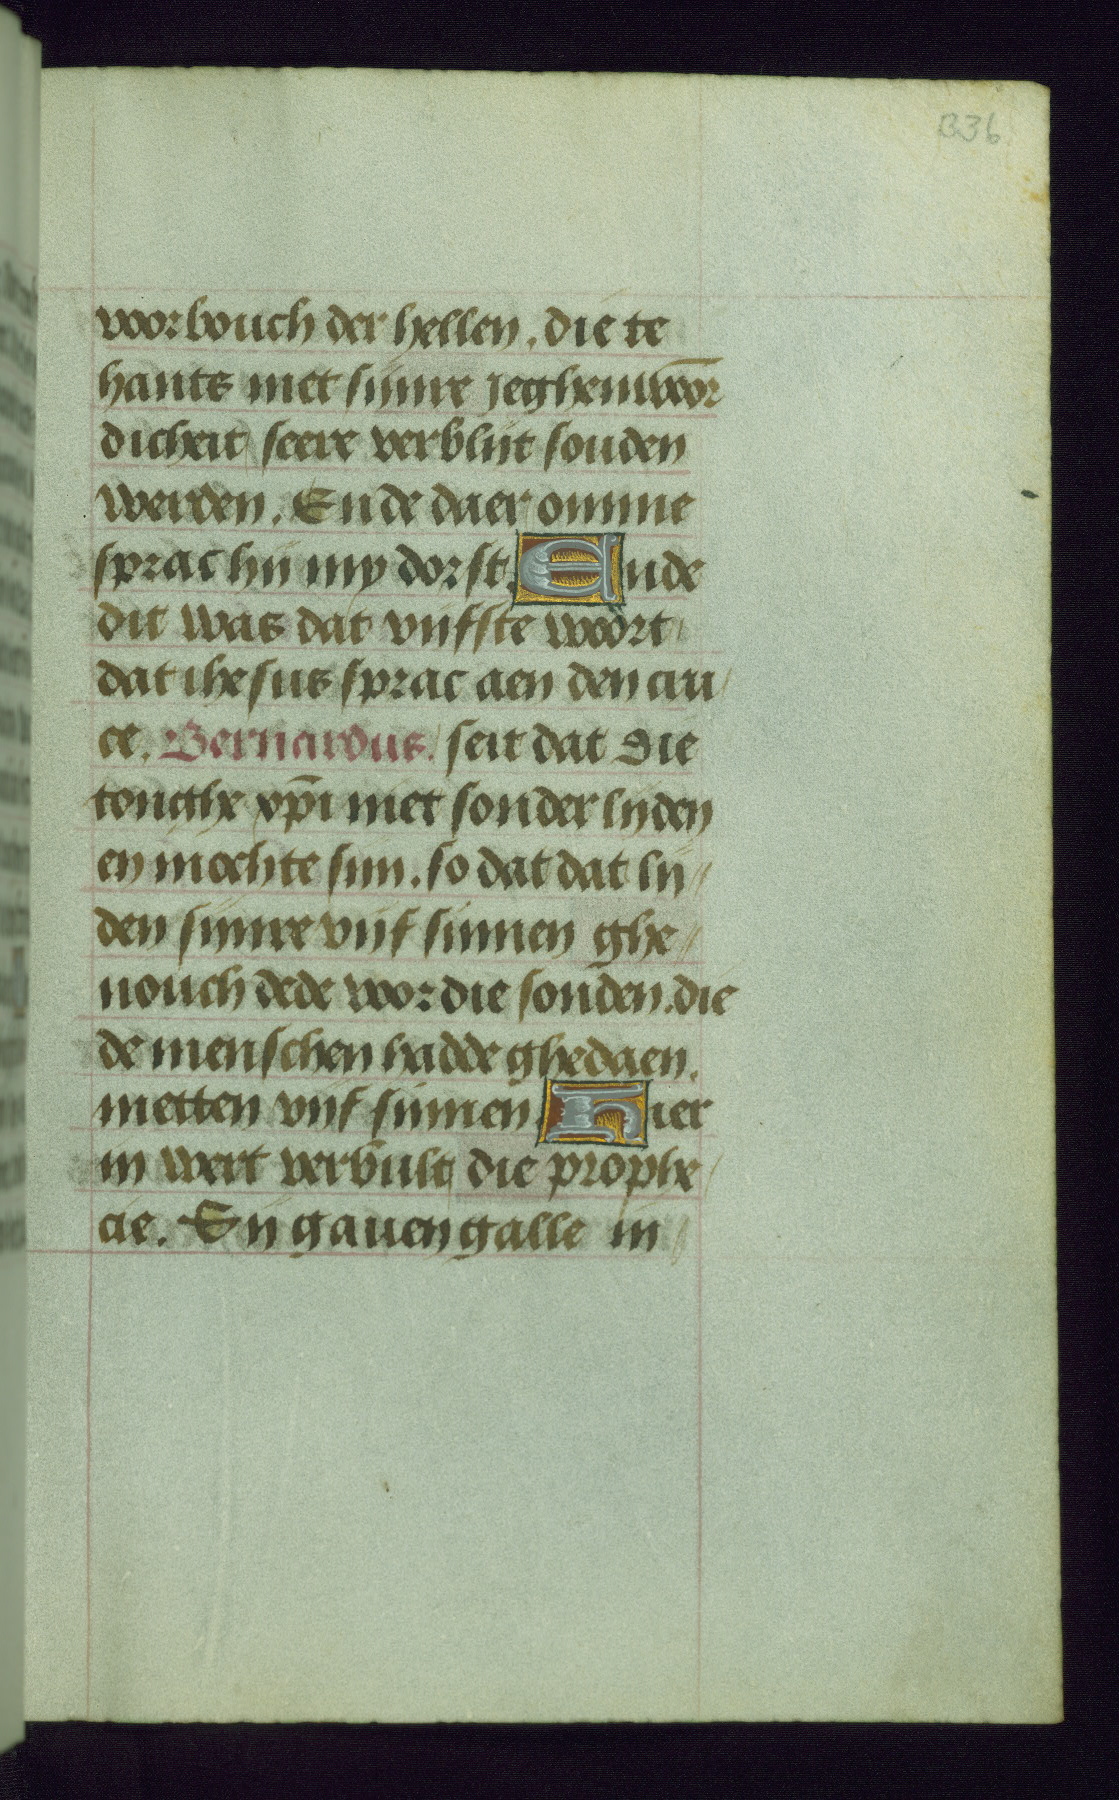 336
voorbouch der hellen. die te
hants met sijnre jeghenwoor̄
dicheit seere verblijt souden
werden. Ende daer omme
sprac hij my dorst. Ende
dit was dat vijfste woort
dat ihesus sprac aen den cru/
ce. Bernardus. seit dat die
tonghe xp̄i niet sonder lijden
en mochte sijn. so dat dat lij//
den sijnre vijf sinnen ghe//
nouch dede voor die sonden. die
de menschen hadde ghedaen.
metten vijf sinnen Hier
in wert vervult die prophe/
cie. Sij gauen galle in//